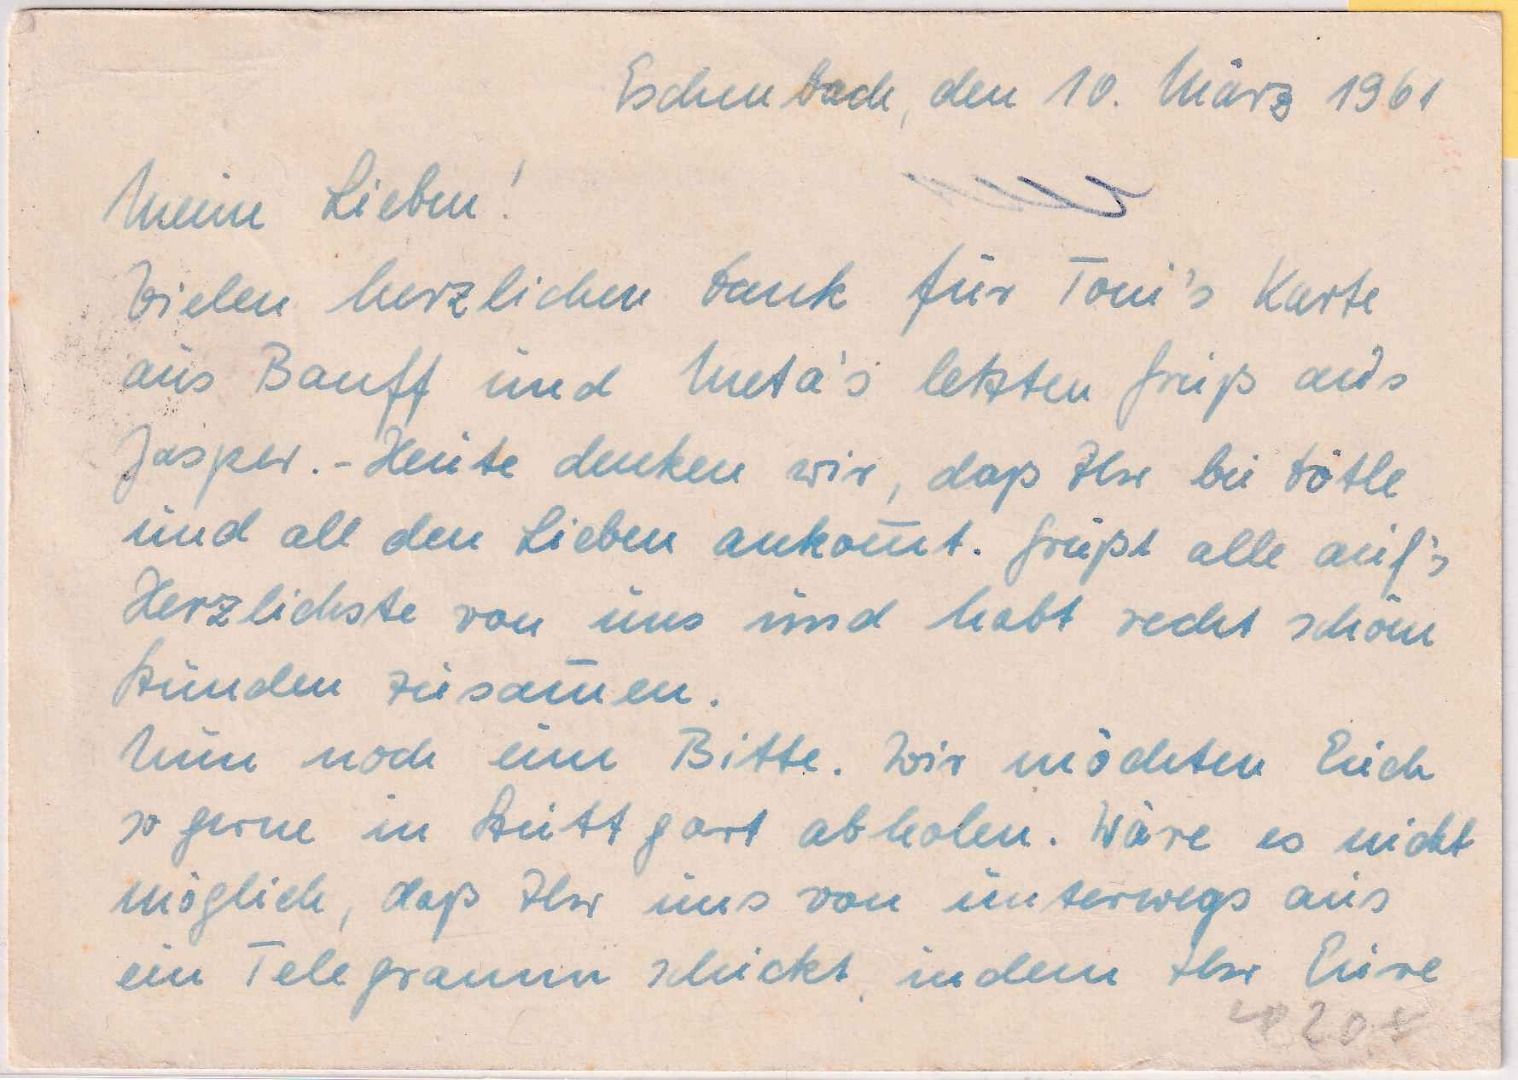 Eschenbach, den 10. März 1961
Meine Lieben!
Vielen herzlichen Dank für Toni's Karte
aus Banff und Meta's letzten Gruß aus
Jasper. - Heute denken wir, daß Ihr bei Dötle
und all den Lieben ankom̅t. Grüßt alle auf's
Herzlichste von uns und habt recht schöne
Stunden zusam̅en.
Nun noch eine Bitte. Wir möchten Euch
so gerne in Stuttgart abholen. Wäre es nicht
möglich, daß Ihr uns von unterwegs aus
ein Telegramm schickt, indem Ihr Eure